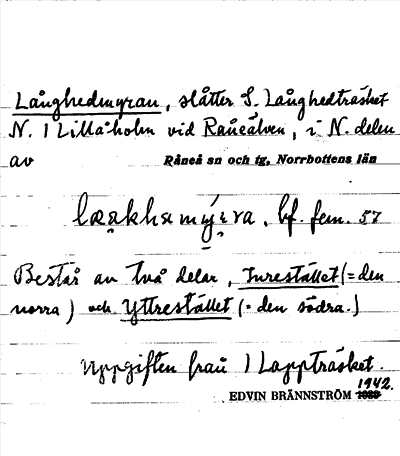 Långhedmyran, slåtter S. Långhedträsket
N. 1 Lillåholm vid Råneälven, i N. delen
av Råneå sn och tg, Norrbottens län
bf. fem. 57
Består av två delar, Inrestället (= den
norra) och Yttrestället (= den södra.)
Uppgiften från 1 Lappträsket.
1942.
EDVIN BRÄNNSTRÖM